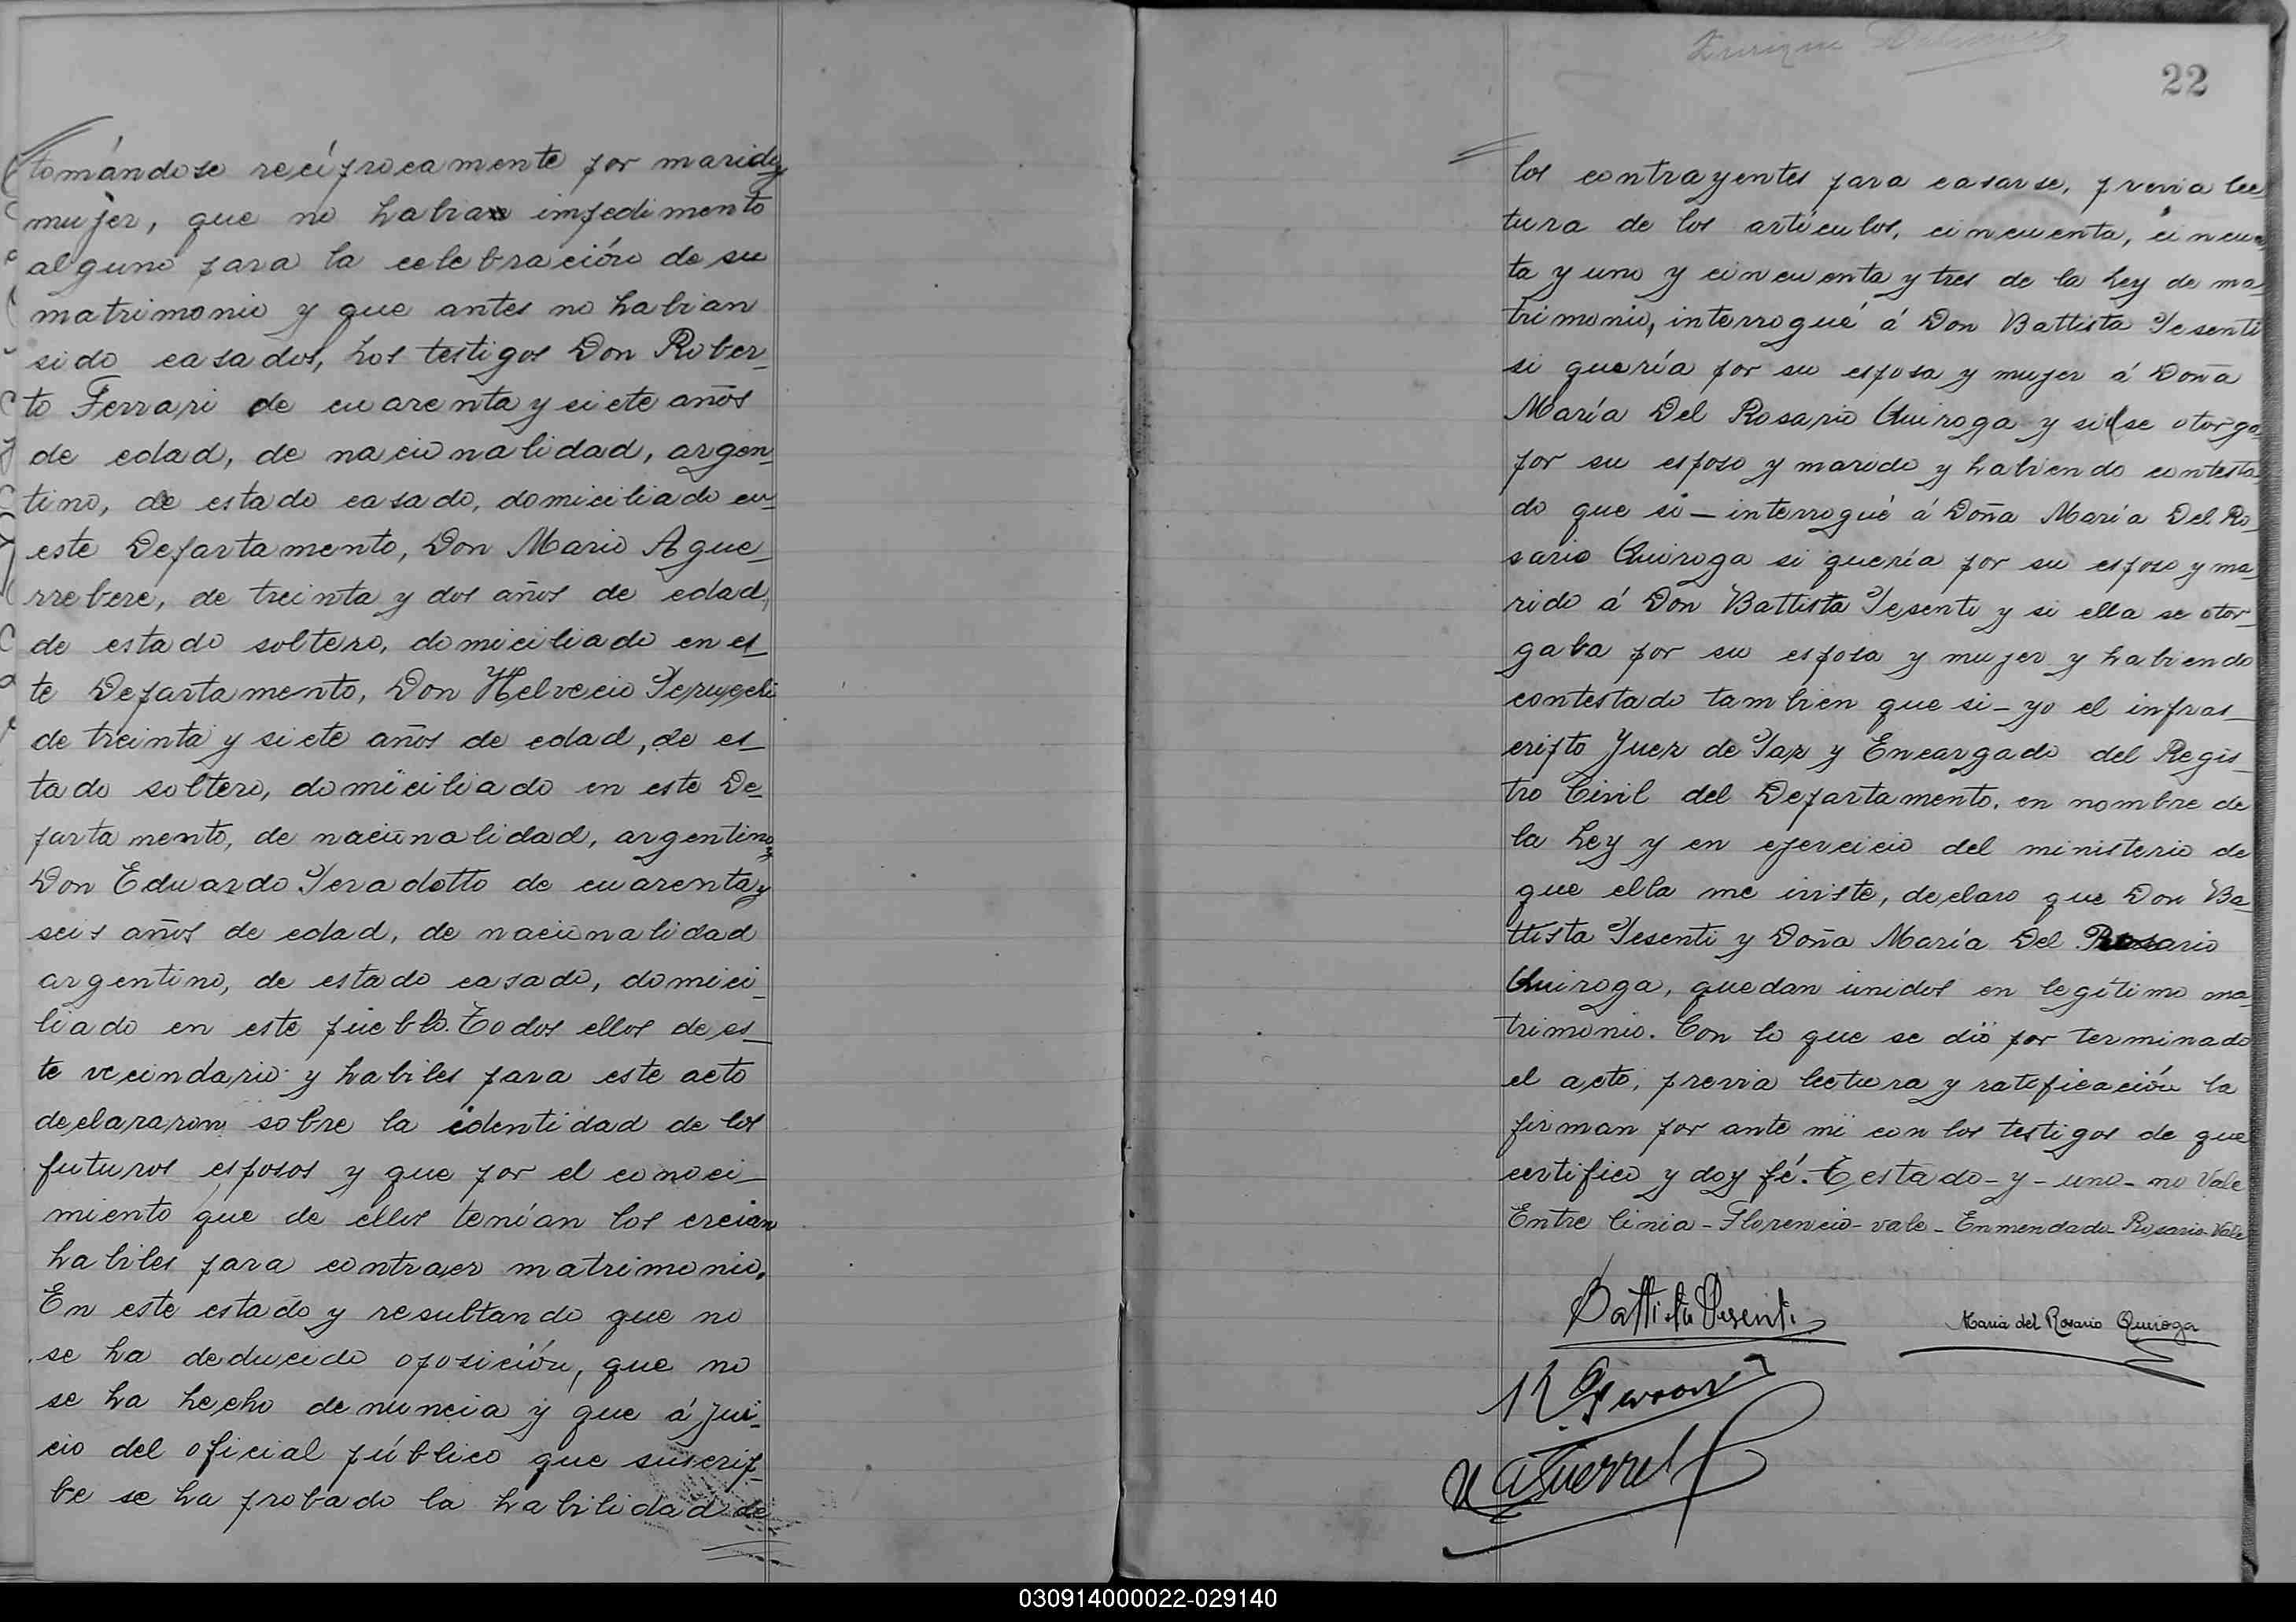 tomándose recíprocamente por marido y
mujer, que no habia impedimento
alguno para la celebración de su
matrimonio y que antes no habian
sido casados, Los testigos Don Rober_
to Ferrari de cuarenta y siete años
de edad, de nacionalidad, argen_
tino, de estado casado, domiciliado en
este Departamento, Don Mario Ague_
rrebere, de treinta y dos años de edad,
de estado soltero, domiciliado en es_
te Departamento, Don Helvecio
de treinta y siete años de edad, de es_
tado soltero, domiciliado en este De_
partamento, de nacionalidad, argentino y
Don Eduardo Peradotto de cuarenta y
seis años de edad, de nacionalidad
argentino, de estado casado, domici_
liado en este pueblo. Todos ellos de es_
te vecindario y habiles para este acto
declararon sobre la identidad de los
futuros esposos y que por el conoci_
miento que de ellos tenían los creian
habiles para contraer matrimonio.
En este estado y resultando que no
se ha deducido oposición, que no
se ha hecho denuncia y que á jui_
cio del oficial público que suscrip_
be se ha probado la habilidad de
Enrique
22
los contrayentes para casarse, previa lec_
tura de los artículos, cincuenta, cincuen
ta y uno y cincuenta y tres de la Ley de ma_
trimonio, interrogué á Don Battista Pesenti
si quería por su esposa y mujer á Doña
María Del Rosario Quiroga y si se otorga
por su esposo y marido y habiendo contesta
do que si _ interrogué á Doña María Del Ro_
sario Quiroga si quería por su esposo y ma_
rido á Don Battista Pesenti y si ella se otor_
gaba por su esposa y mujer y habiendo
contestado tambien que si _ yo el infras_
cripto Juez de Paz y Encargado del Regis_
tro Civil del Departamento, en nombre de
la Ley y en ejercicio del ministerio de
que ella me inviste, declaro que Don Ba_
ttista Pesenti y Doña María Del Rosario
Quiroga, quedan unidos en legítimo ma_
trimonio. Con lo que se dió por terminado
el acto, previa lectura y ratificación la
firman por ante mí con los testigos de que
certifico y doy fé. Testado _ y _ uno _ no Vale
Entre linia _ Florencio _ vale _ Enmendado _ Rosario _ Vale
Battista Pesenti
Maria del Rosario Quiroga
R Ferrari
030914000022-029140